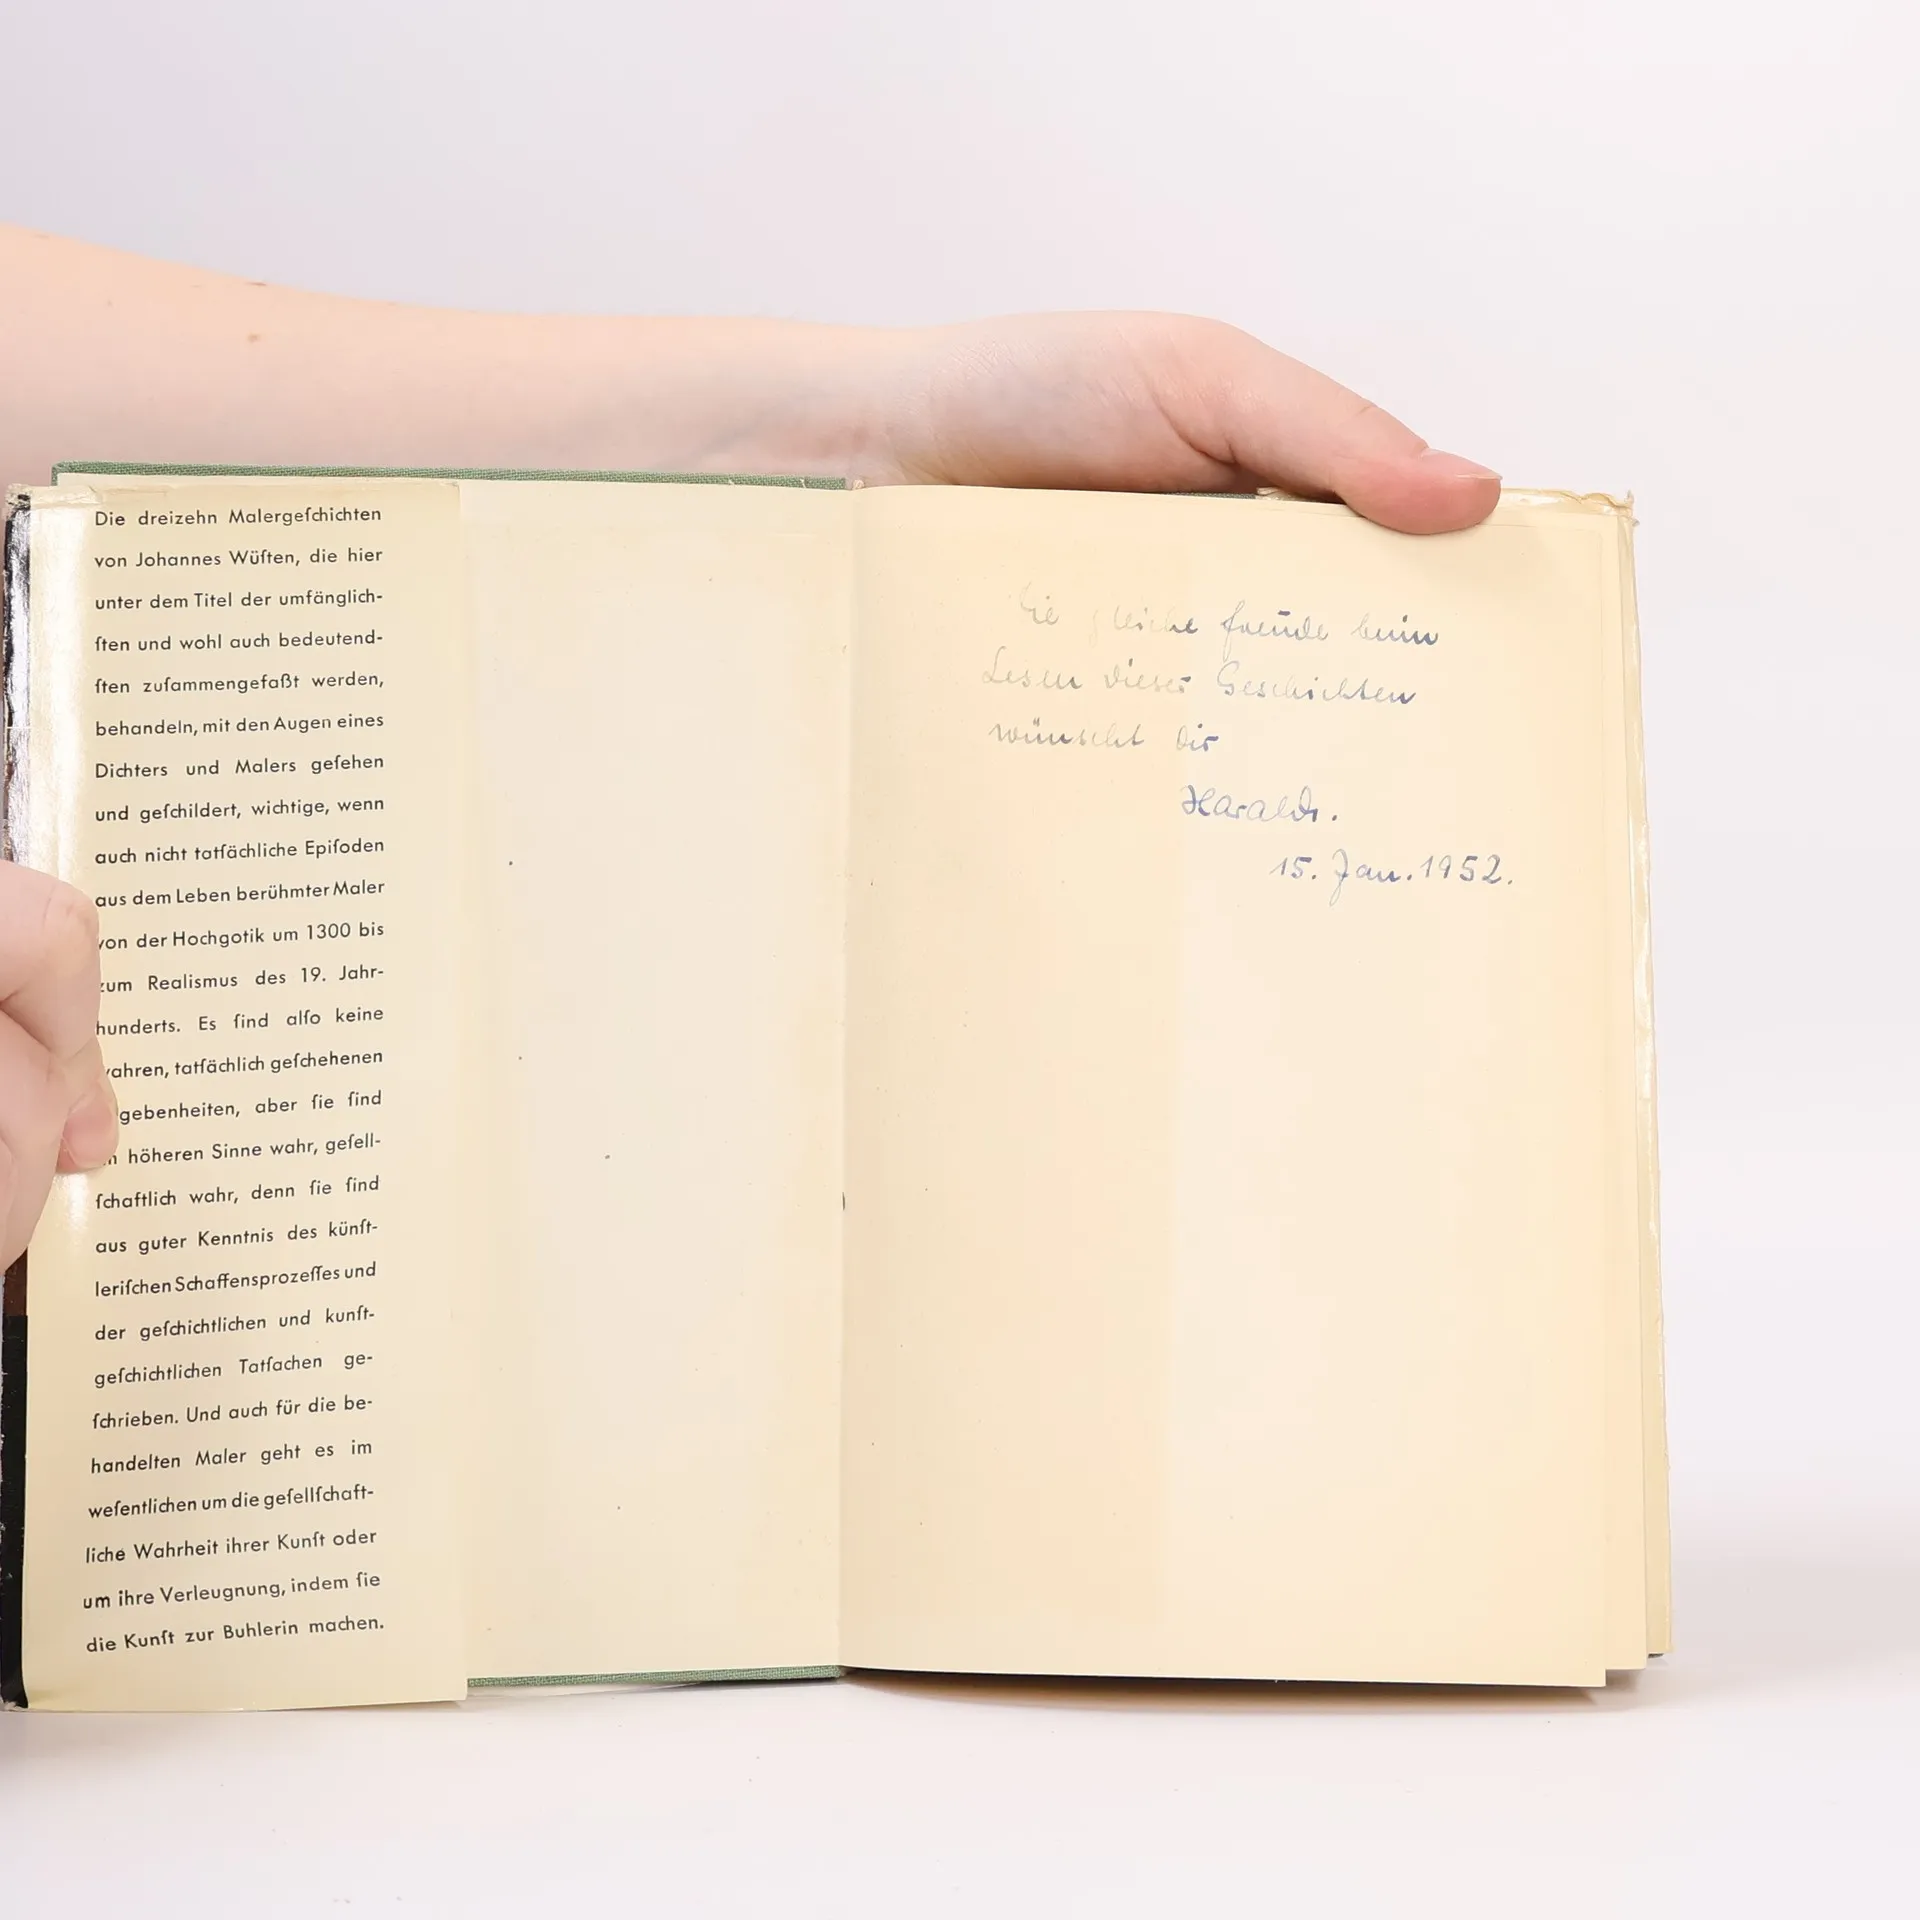 Die dreizehn Malergeſchichten
von Johannes Wüſten, die hier
unter dem Titel der umfänglich-
ſten und wohl auch bedeutend-
ſten zuſammengefaßt werden,
behandeln, mit den Augen eines
Dichters und Malers geſehen
und geſchildert, wichtige, wenn
auch nicht tatſächliche Epiſoden
aus dem Leben berühmter Maler
von der Hochgotik um 1300 bis
zum Realismus des 19. Jahr-
hunderts. Es ſind alſo keine
wahren, tatſächlich geſchehenen
gebenheiten, aber ſie ſind
höheren Sinne wahr, geſell-
ſchaftlich wahr, denn ſie ſind
aus guter Kenntnis des künſt-
leriſchen Schaffensprozeſſes und
der geſchichtlichen und kunſt-
geſchichtlichen Tatſachen ge-
ſchrieben. Und auch für die be-
handelten Maler geht es im
weſentlichen um die geſellſchaft-
liche Wahrheit ihrer Kunſt oder
um ihre Verleugnung, indem ſie
die Kunſt zur Buhlerin machen.
Die gleiche Freude beim
Lesen dieser Geschichten
wünscht Dir
Harald.
15. Jan. 1952.